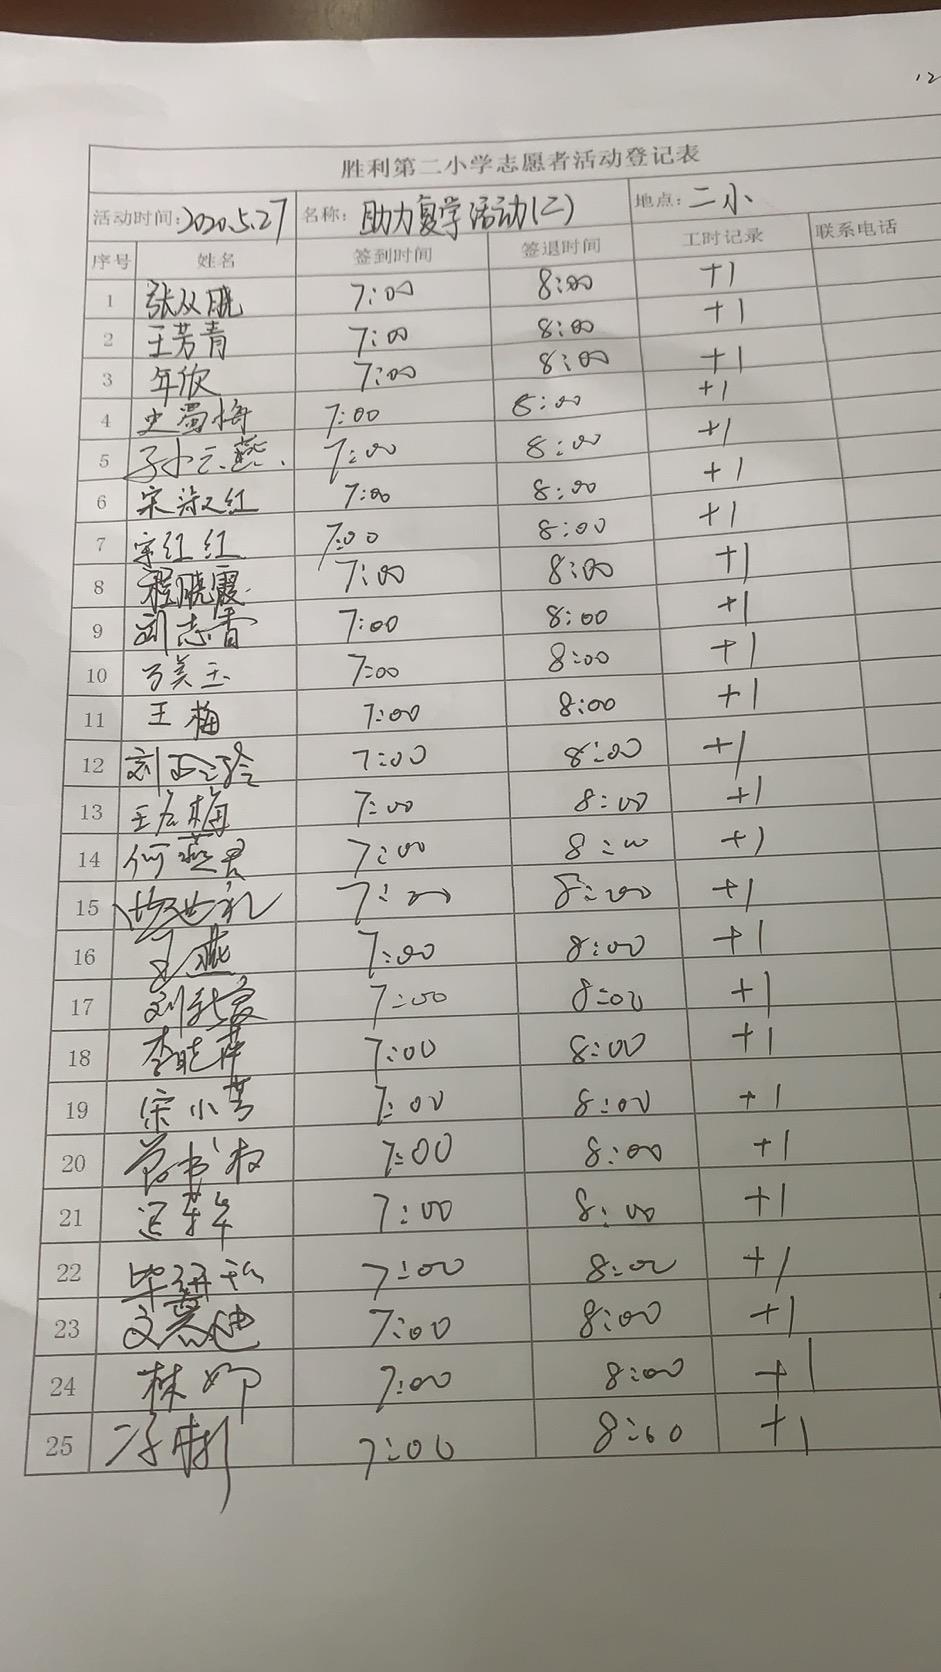 12
胜利第二小学志愿者活动登记表
活动时间:2020.5.27 名称: 助力复学活动(二) 地点: 二小
序号 姓名 签到时间 签退时间 工时记录 联系电话
1 张从晓 7:00 8:00 +1
2 王芳青 7:00 8:00 +1
3 年欣 7:00 8:00 +1
4 史蜀梅 7:00 8:00 +1
5 7:00 8:00 +1
6 宋淑红 7:00 8:00 +1
7 宗红红 7:00 8:00 +1
8 程晓霞 7:00 8:00 +1
9 刘志香 7:00 8:00 +1
10 美玉 7:00 8:00 +1
11 王梅 7:00 8:00 +1
12 7:00 8:00 +1
13 王友梅 7:00 8:00 +1
14 何燕君 7:00 8:00 +1
15 7:00 8:00 +1
16 王燕 7:00 8:00 +1
17 7:00 8:00 +1
18 李晓萍 7:00 8:00 +1
19 宋小芳 7:00 8:00 +1
20 7:00 8:00 +1
21 7:00 8:00 +1
22 7:00 8:00 +1
23 7:00 8:00 +1
24 林娜 7:00 8:00 +1
25 7:00 8:00 +1